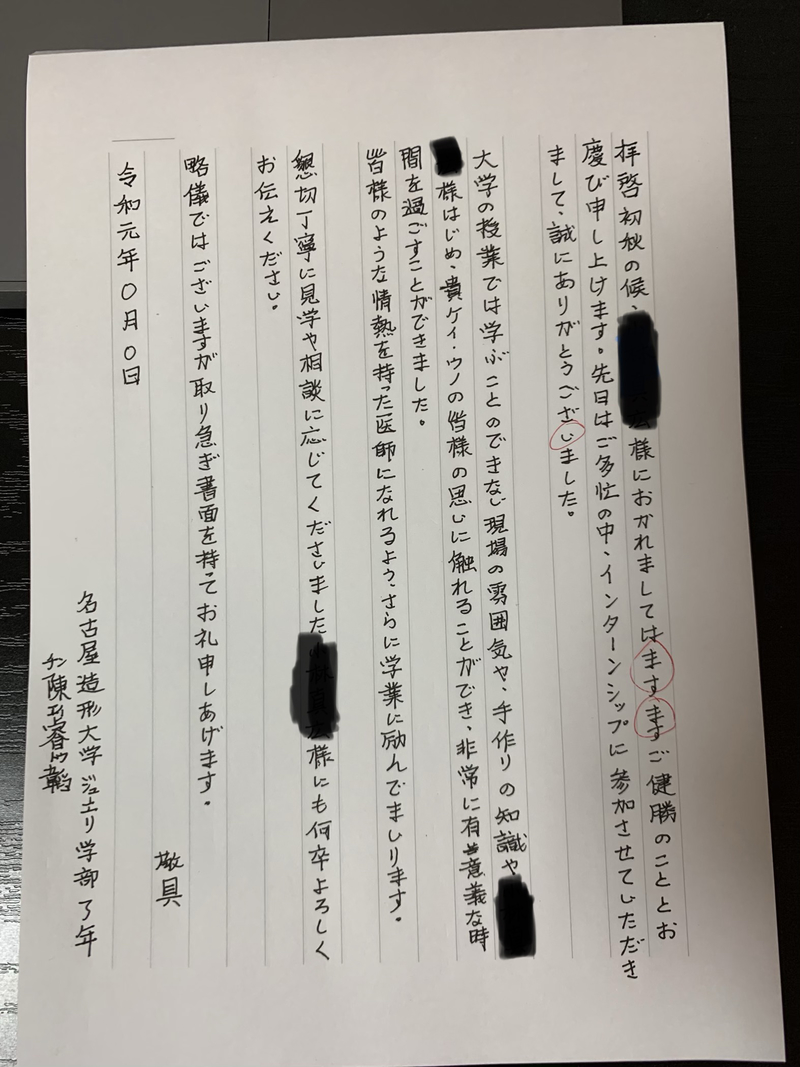 拝啓初秋の候、様におかれましてはますますご健勝のこととお
慶び申し上げます。先日はご多忙の中、インターンシップに参加させていただき
まして、誠にありがとうございました。
大学の授業では学ぶことのできない現場の雰囲気や、手作りの知識や
様はじめ、貴ケイ・ウノの皆様の思いに触れることができ、非常に有意義な時
間を過ごすことができました。
皆様のような情熱を持った医師になれるよう、さらに学業に励んでまいります。
懇切丁寧に見学や相談に応じてくださいました様にも何卒よろしく
お伝えください。
略儀ではございますが取り急ぎ書面を持ってお礼申しあげます。
敬具
令和元年〇月〇日
名古屋造形大学ジュエリ学部3年
陳